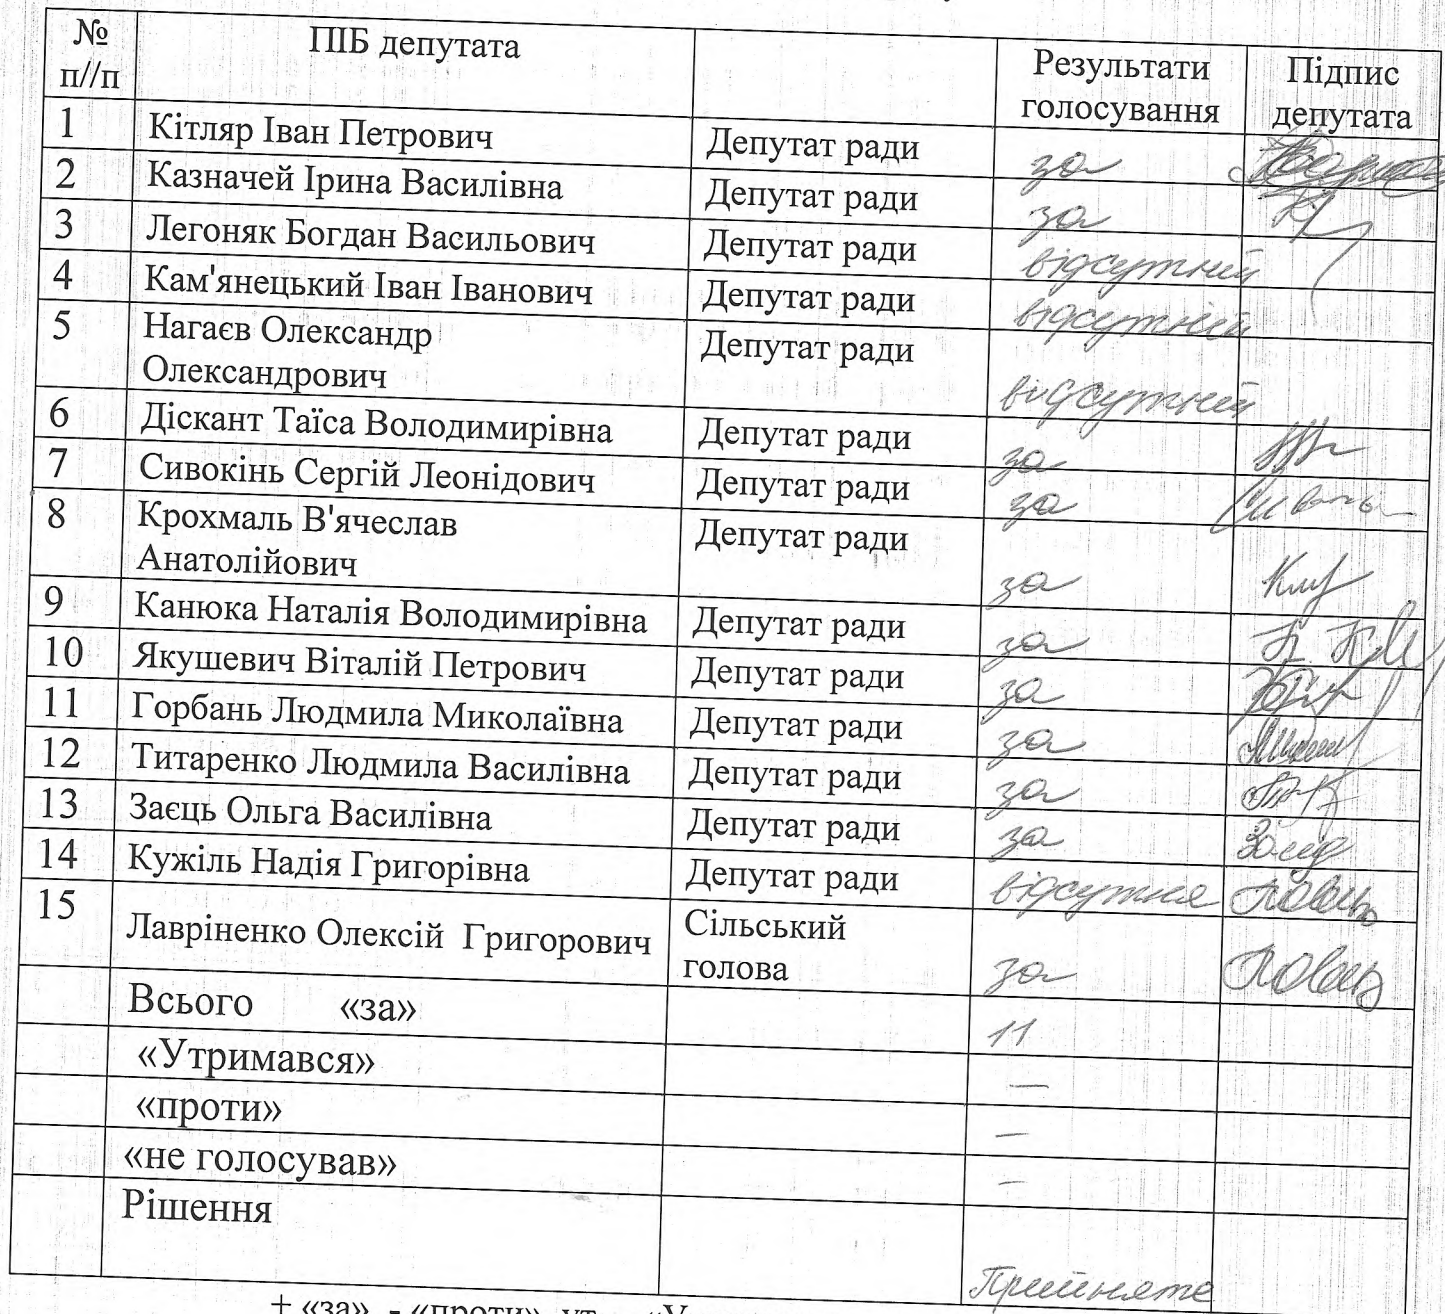 № п//п ПІБ депутата Результати голосування Підпис депутата
1 Кітляр Іван Петрович Депутат ради за
2 Казначей Ірина Василівна Депутат ради за
3 Легоняк Богдан Васильович Депутат ради відсутній
4 Кам'янецький Іван Іванович Депутат ради відсутній
5 Нагаєв Олександр Олександрович Депутат ради відсутній
6 Діскант Таїса Володимирівна Депутат ради за
7 Сивокінь Сергій Леонідович Депутат ради за
8 Крохмаль В'ячеслав Анатолійович Депутат ради за
9 Канюка Наталія Володимирівна Депутат ради за
10 Якушевич Віталій Петрович Депутат ради за
11 Горбань Людмила Миколаївна Депутат ради за
12 Титаренко Людмила Василівна Депутат ради за
13 Заєць Ольга Василівна Депутат ради за
14 Кужіль Надія Григорівна Депутат ради відсутня
15 Лавріненко Олексій Григорович Сільський голова за
Всього «за» 11
«Утримався» —
«проти» —
«не голосував» —
Рішення Прийнято
+ «за» - «проти»